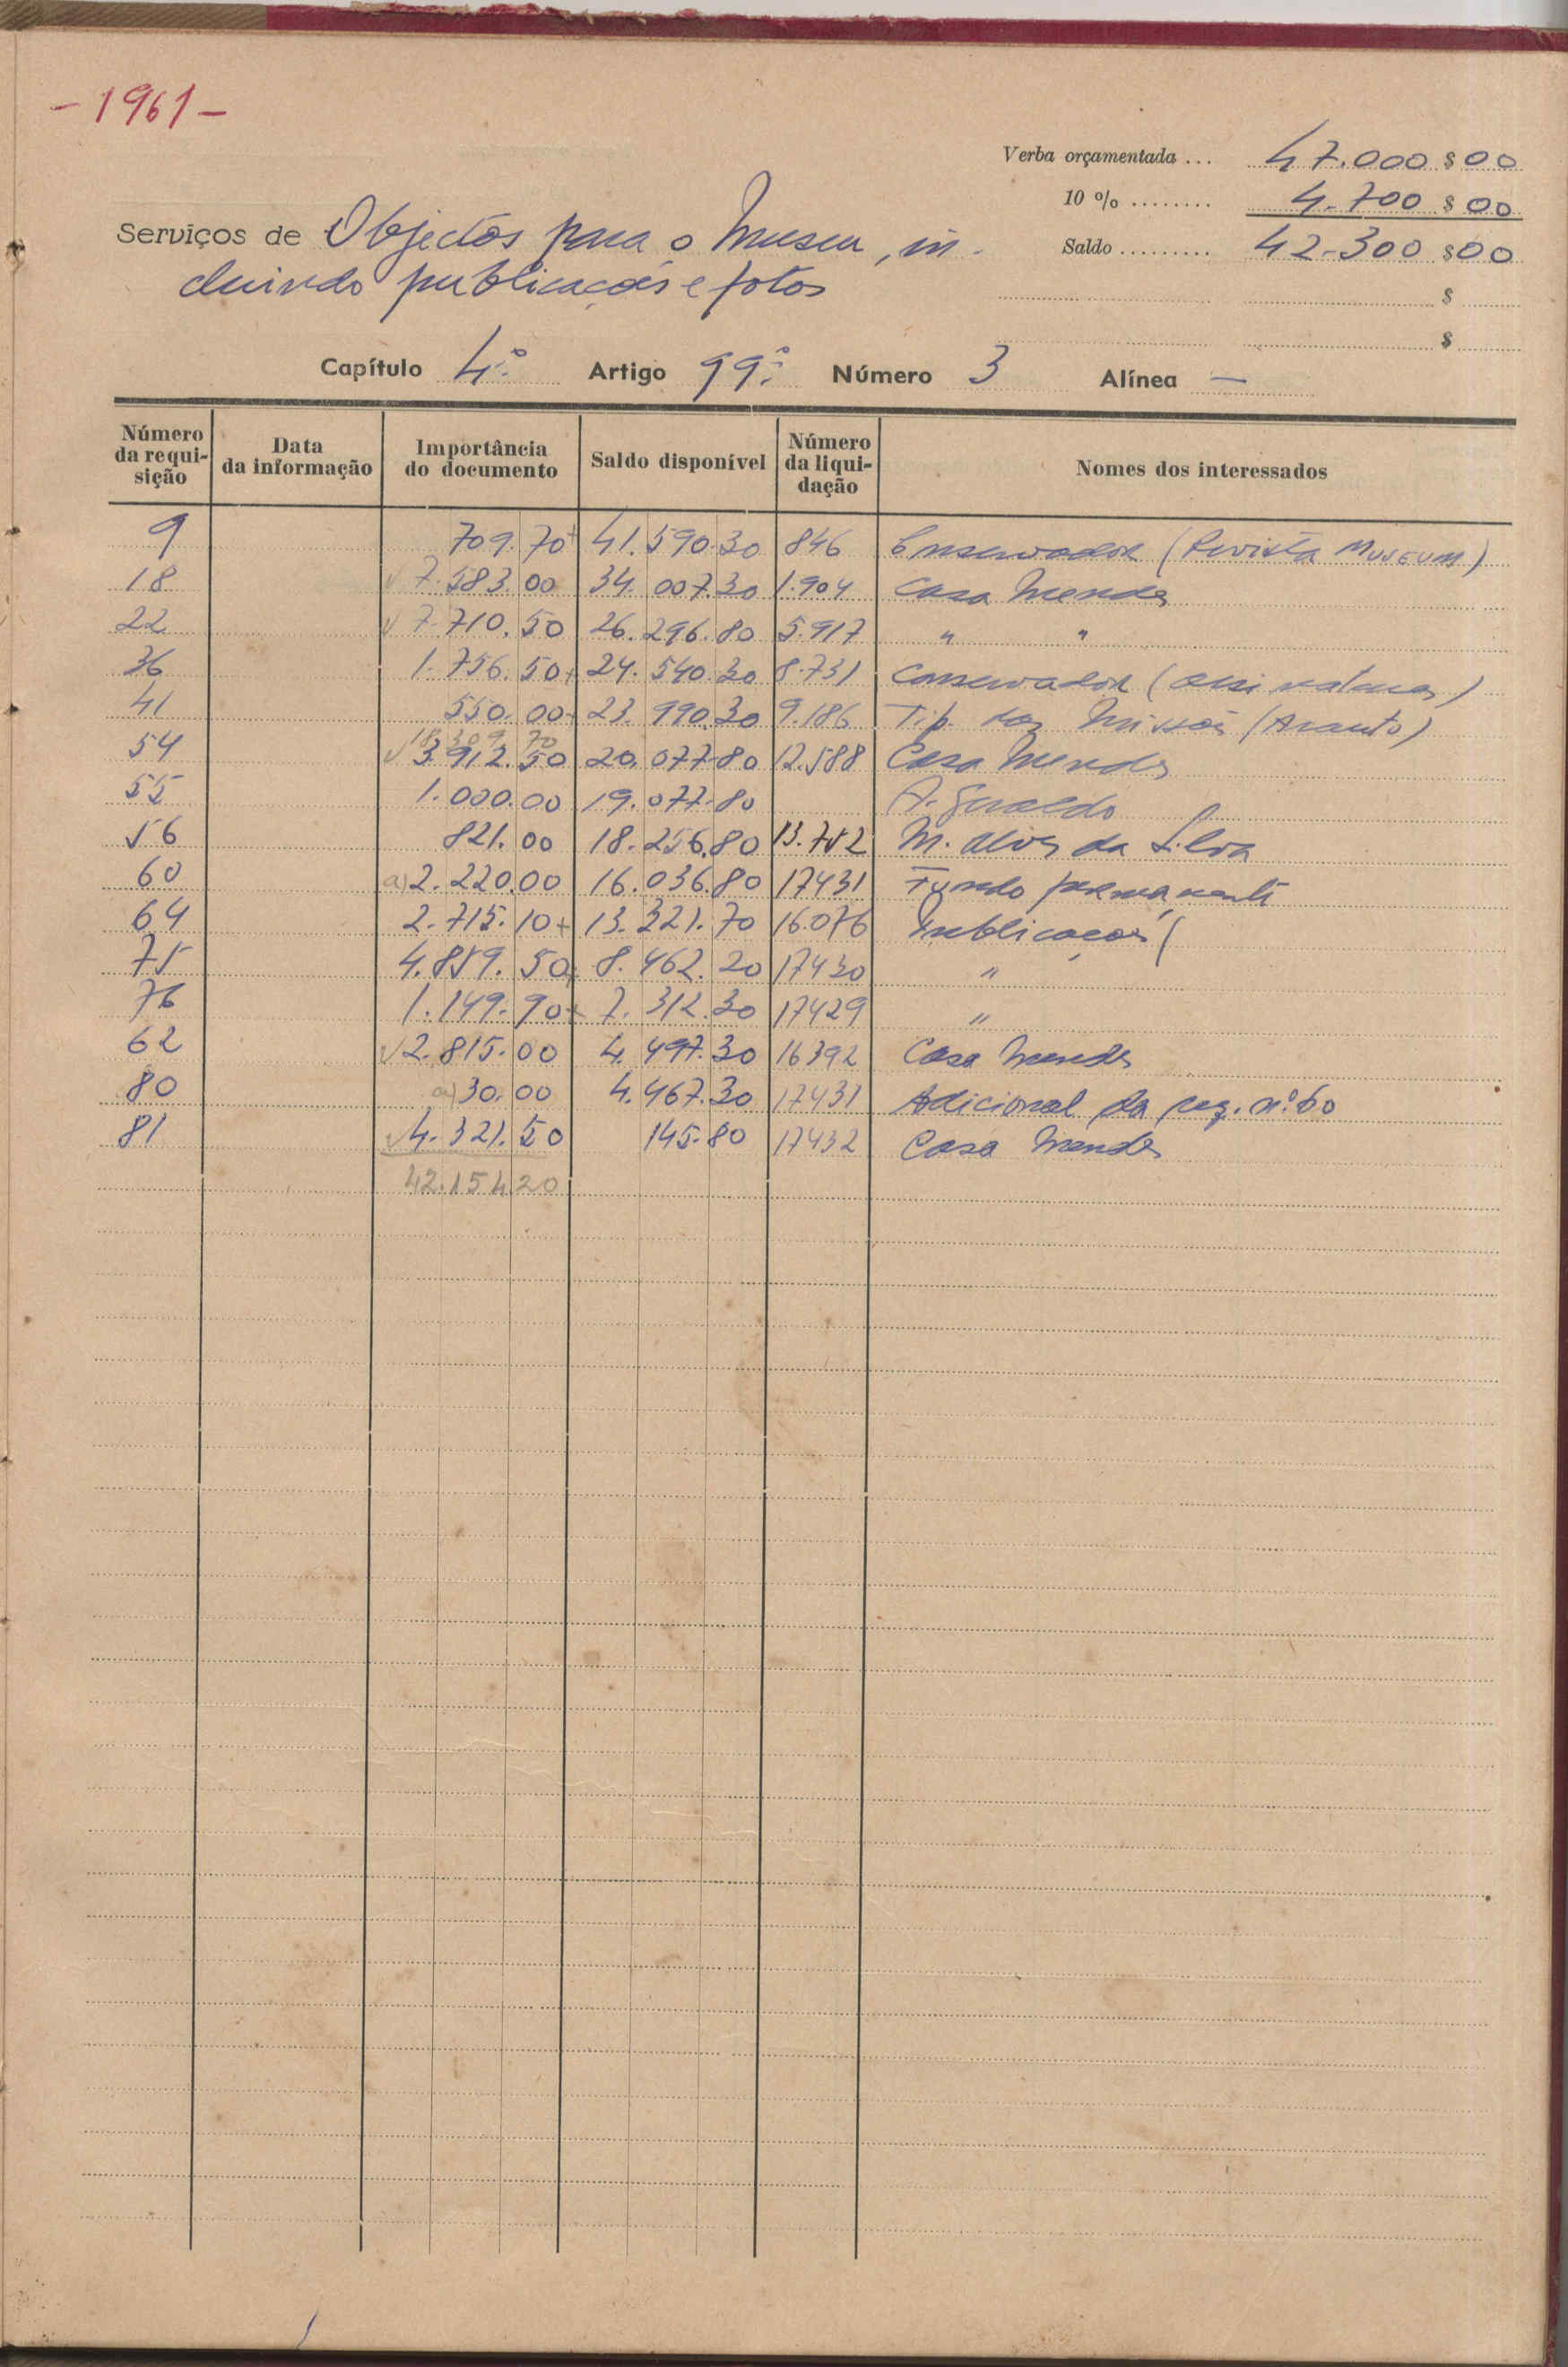 - 1961 -
Verba orçamentada ... 47.000 $ 00
10 % ........ 4.700 $ 00
Serviços de Objectos para o Museu, in-
Saldo ......... 42.300 $ 00
cluindo publicações e fotos
$
$
Capítulo 4.º Artigo 99.º Número 3 Alínea —
Número da requi-sição Data da informação Importância do documento Saldo disponível Número da liqui-dação Nomes dos interessados
9 709.70+ 41.590.30 846 Conservador (Revista MUSEUM)
18 √ 7.583.00 34.007.30 1.904 Casa Mendes
22 √ 7.710.50 26.296.80 5.917 " "
36 1.756.50+ 24.540.30 8.731 Conservador (assinaturas)
41 550.00 23.990.30 9.186 Tip. das Missões (Arauto)
18.309 70
54 √ 3.912.50 20.077.80 12.588 Casa Mendes
55 1.000.00 19.077.80 A. Geraldo
56 821.00 18.256.80 13.752 M. Alves da Silva
60 a) 2.220.00 16.036.80 17431 Fundo permanente
64 2.715.10+ 13.321.70 16.076 Publicações (
75 4.859.50 8.462.20 17430 "
76 1.149.90+ 7.312.30 17429 "
62 √ 2.815.00 4.497.30 16392 Casa Mendes
80 a) 30.00 4.467.30 17431 Adicional da req. nº 60
81 √ 4.321.50 145.80 17432 Casa Mendes
42.154 20